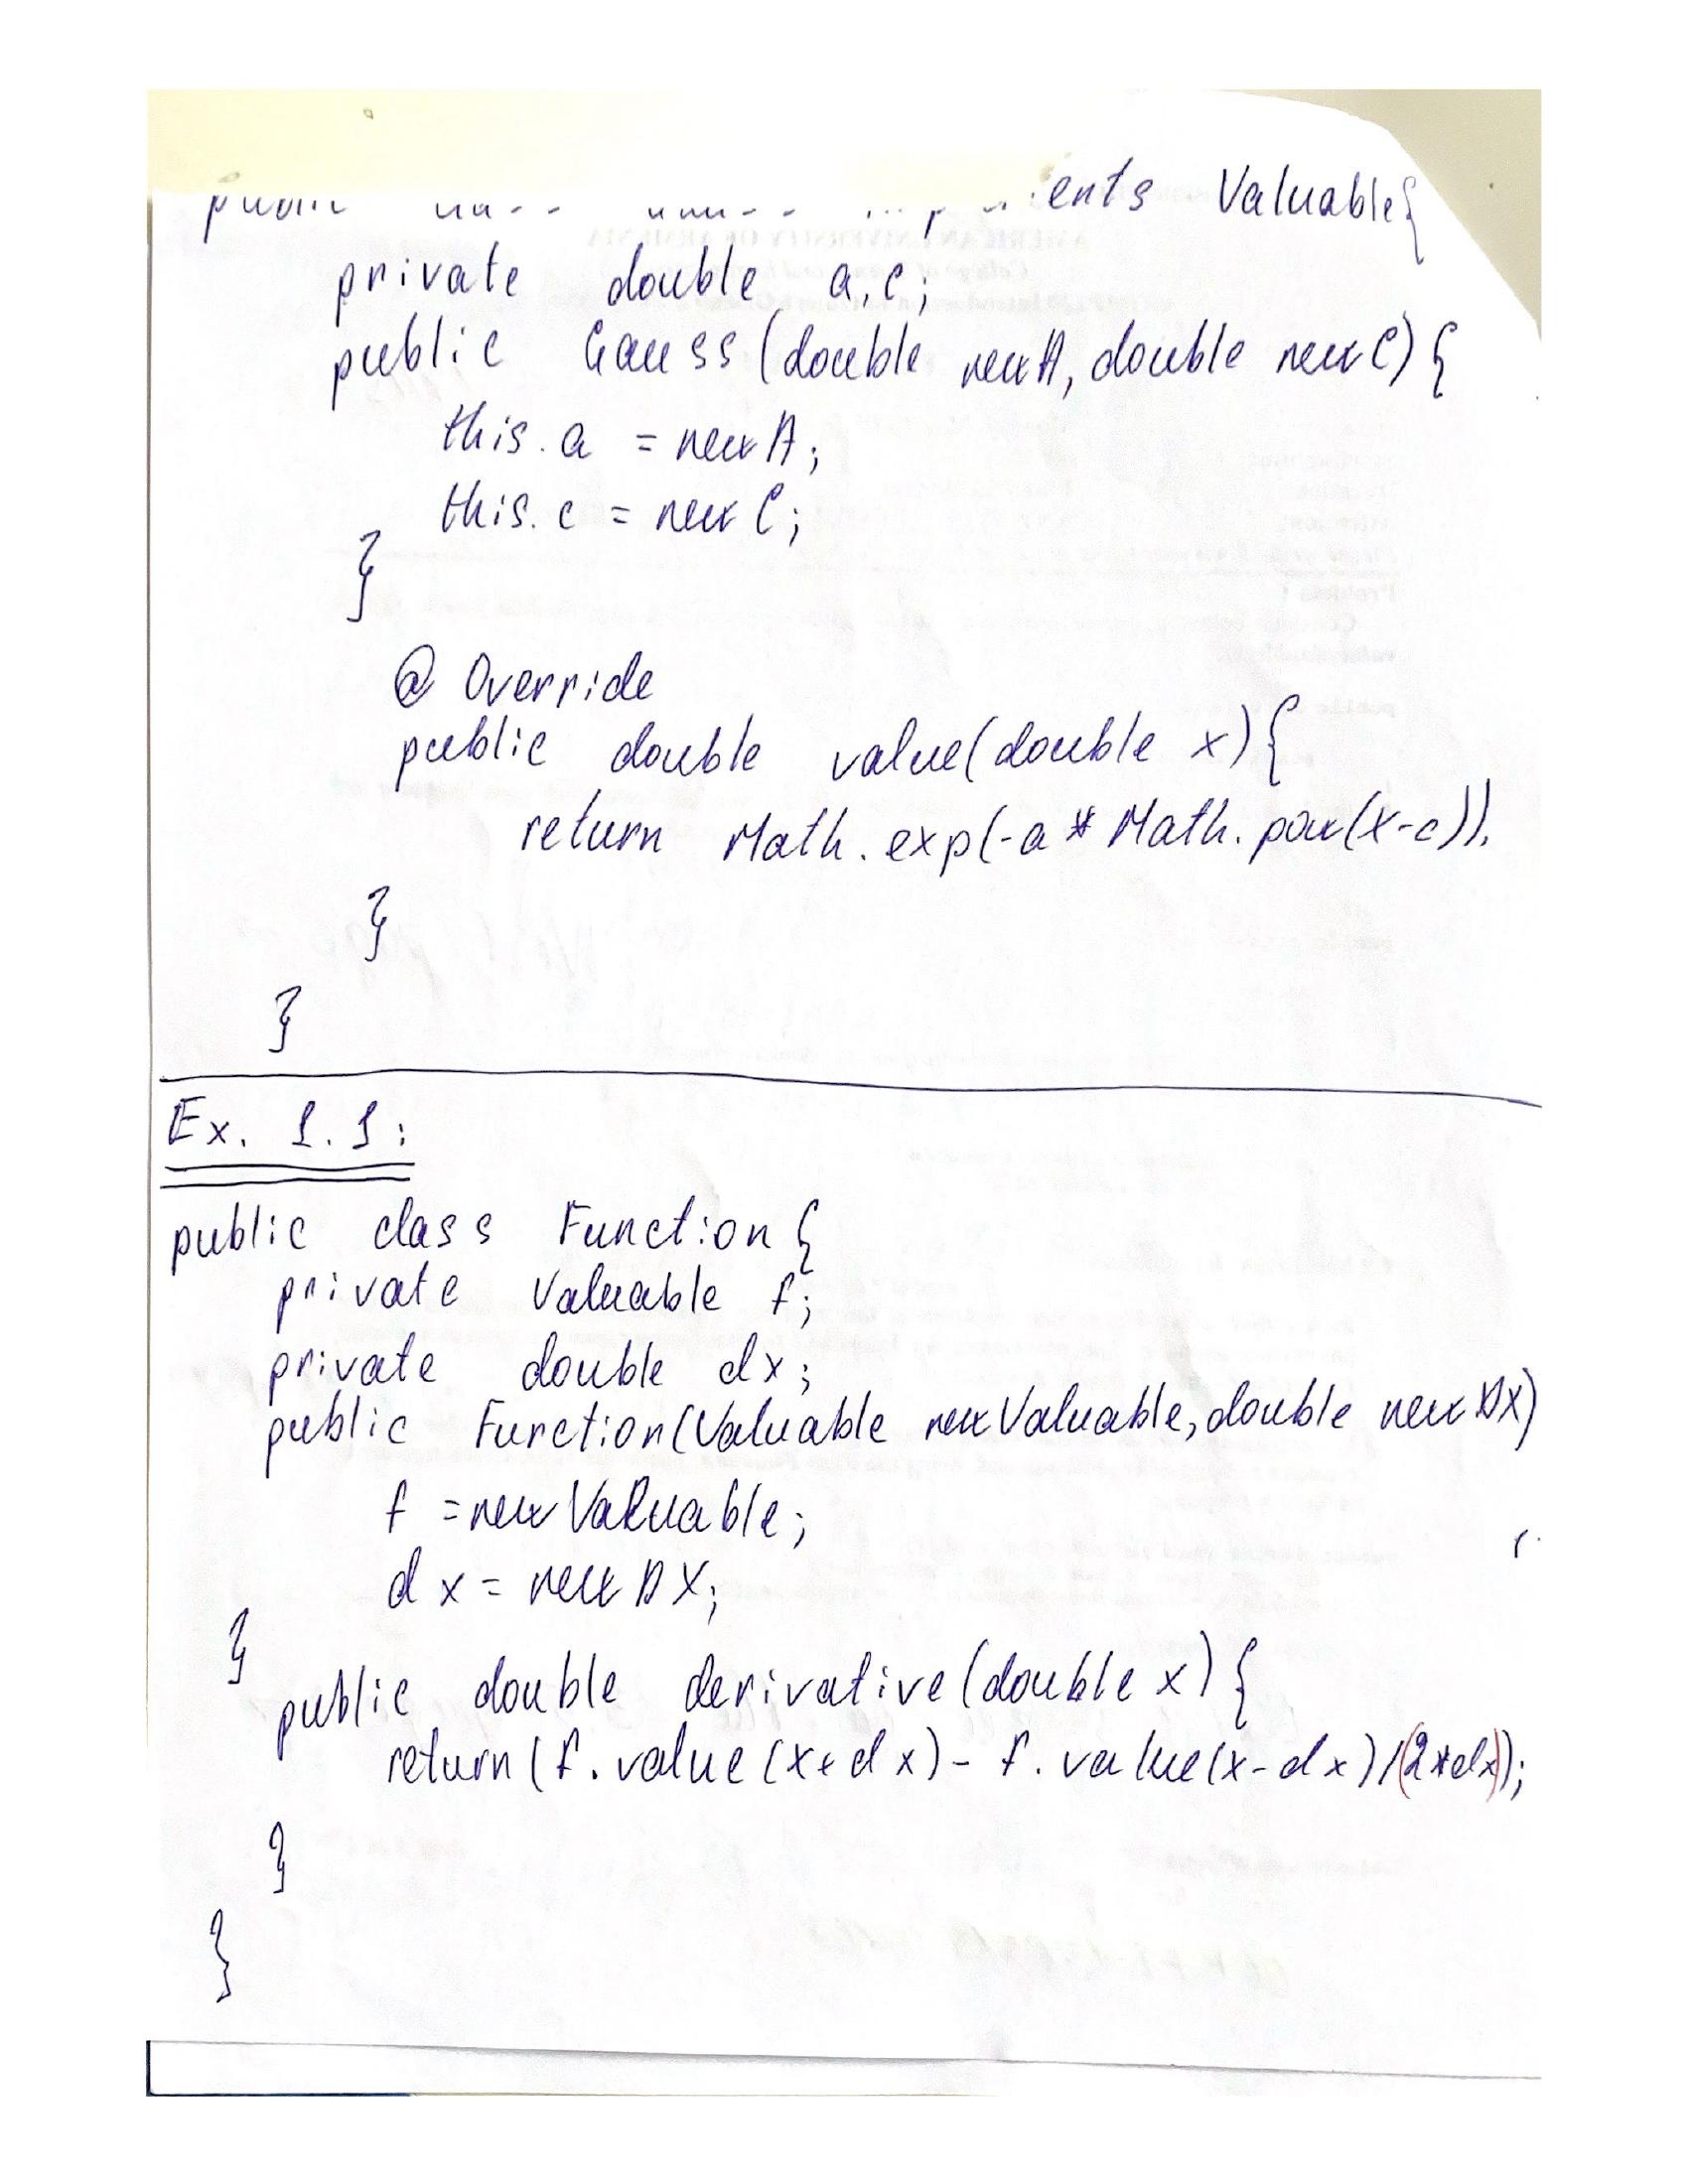 public class Gauss implements Valuable{
private double a,c;
public Gauss(double newA, double newC){
this.a = newA;
this.c = newC;
}
@Override
public double value(double x){
return Math.exp(-a * Math.pow(x-c)).
}
}
Ex. 1.1:
public class Function{
private Valuable f;
private double dx;
public Function(Valuable newValuable, double newDX)
f = newValuable;
dx = newDX;
}
public double derivative(double x){
return(f.value(x+dx)- f.value(x-dx)/(2*dx));
}
}